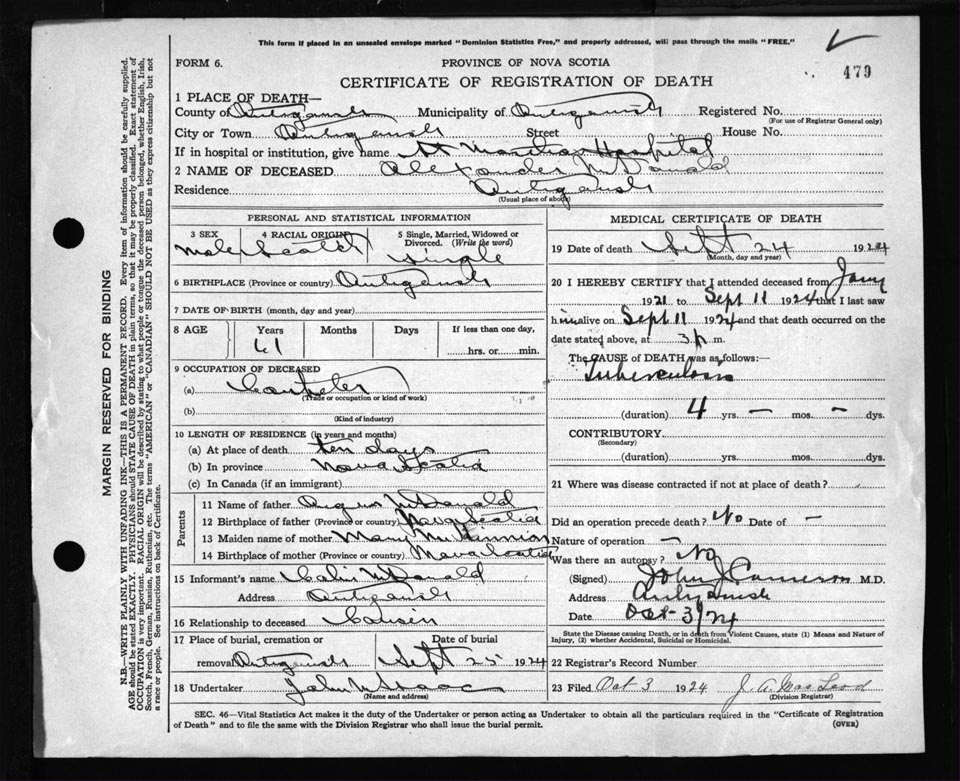 This form if placed in an unsealed envelope marked "Dominion Statistics Free," and properly addressed, will pass through the mails "FREE."
FORM 6.
PROVINCE OF NOVA SCOTIA
479
CERTIFICATE OF REGISTRATION OF DEATH
1 PLACE OF DEATH—
County of Antigonish Municipality of Antigonish Registered No.
(For use of Registrar General only)
City or Town Antigonish Street House No.
If in hospital or institution, give name St Martha Hospital
2 NAME OF DECEASED Alexander McDonald
Residence Antigonish
(Usual place of abode)
PERSONAL AND STATISTICAL INFORMATION
3 SEX 4 RACIAL ORIGIN 5 Single, Married, Widowed or Divorced. (Write the word)
Male Scotch Single
6 BIRTHPLACE (Province or country) Antigonish
7 DATE OF BIRTH (month, day and year)
8 AGE Years Months Days If less than one day,
61 hrs. or min.
9 OCCUPATION OF DECEASED
(a)
(Trade or occupation or kind of work)
(b)
(Kind of industry)
10 LENGTH OF RESIDENCE (in years and months)
(a) At place of death ten days
(b) In province Nova Scotia
(c) In Canada (if an immigrant)
Parents
11 Name of father Angus McDonald
12 Birthplace of father (Province or country) Nova Scotia
13 Maiden name of mother Mary McKinnon
14 Birthplace of mother (Province or country) Nova Scotia
15 Informant's name Colin McDonald
Address Antigonish
16 Relationship to deceased Cousin
17 Place of burial, cremation or removal Antigonish Date of burial Sept 25 1924
18 Undertaker John McIsaac
(Name and address)
MEDICAL CERTIFICATE OF DEATH
19 Date of death Sept 24 1924
(Month, day and year)
20 I HEREBY CERTIFY that I attended deceased from Jany
1921 to Sept 11 1924 that I last saw
him alive on Sept 11 1924 and that death occurred on the
date stated above, at 3 p. m.
The CAUSE OF DEATH was as follows:
Tuberculosis
(duration) 4 yrs. — mos. — dys.
CONTRIBUTORY
(Secondary)
(duration) yrs. mos. dys.
21 Where was disease contracted if not at place of death?
Did an operation precede death? No Date of —
Nature of operation —
Was there an autopsy? No
(Signed) John J Cameron M.D.
Address Antigonish
Date Oct - 3/24
State the Disease causing Death, or in death from Violent Causes, state (1) Means and Nature of
Injury, (2) whether Accidental, Suicidal or Homicidal.
22 Registrar's Record Number
23 Filed Oct 3 1924 J. A. MacLeod
(Division Registrar)
SEC. 46—Vital Statistics Act makes it the duty of the Undertaker or person acting as Undertaker to obtain all the particulars required in the "Certificate of Registration
of Death" and to file the same with the Division Registrar who shall issue the burial permit.
(OVER)
MARGIN RESERVED FOR BINDING
N.B.—WRITE PLAINLY WITH UNFADING INK—THIS IS A PERMANENT RECORD. Every item of information should be carefully supplied.
AGE should be stated EXACTLY. PHYSICIANS should STATE CAUSE OF DEATH in plain terms, so that it may be properly classified. Exact statement of
OCCUPATION is very important. RACIAL ORIGIN will be described by stating to what people or tongue the deceased person belonged, whether English, Irish,
Scotch, French, German, Russian, Ruthenian, etc. The terms "AMERICAN" or "CANADIAN" SHOULD NOT BE USED as they express citizenship but not
a race or people. See instructions on back of Certificate.